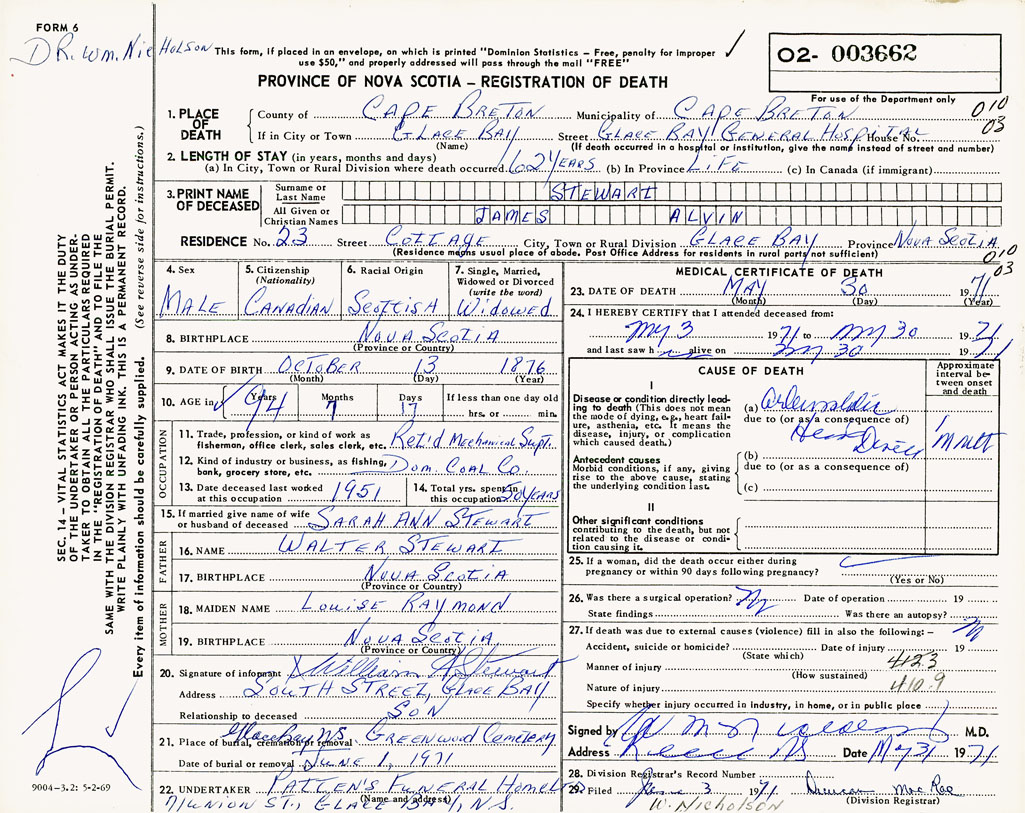 FORM 6
DR. WM. Nicholson
This form, if placed in an envelope, on which is printed "Dominion Statistics – Free, penalty for improper
use $50," and properly addressed will pass through the mail "FREE"
02- 003662
For use of the Department only
PROVINCE OF NOVA SCOTIA – REGISTRATION OF DEATH
010
03
1. PLACE OF DEATH
County of CAPE BRETON Municipality of CAPE BRETON
If in City or Town GLACE BAY Street GLACE BAY GENERAL HOSPITAL House No.
(Name) (If death occurred in a hospital or institution, give the name instead of street and number)
2. LENGTH OF STAY (in years, months and days)
(a) In City, Town or Rural Division where death occurred 62 YEARS (b) In Province LIFE (c) In Canada (if immigrant)
3. PRINT NAME OF DECEASED
Surname or Last Name STEWART
All Given or Christian Names JAMES ALVIN
RESIDENCE No. 23 Street COTTAGE City, Town or Rural Division GLACE BAY Province NOVA SCOTIA
(Residence means usual place of abode. Post Office Address for residents in rural parts not sufficient)
010
03
4. Sex
MALE
5. Citizenship
(Nationality)
CANADIAN
6. Racial Origin
SCOTTISH
7. Single, Married,
Widowed or Divorced
(write the word)
WIDOWED
8. BIRTHPLACE NOVA SCOTIA
(Province or Country)
9. DATE OF BIRTH OCTOBER 13 1876
(Month) (Day) (Year)
10. AGE in Years Months Days If less than one day old
94 7 17 hrs. or min.
OCCUPATION
11. Trade, profession, or kind of work as
fisherman, office clerk, sales clerk, etc. Ret'd Mechanical Supt.
12. Kind of industry or business, as fishing,
bank, grocery store, etc. Dom. Coal Co.
13. Date deceased last worked
at this occupation 1951
14. Total yrs. spent in
this occupation 50 YEARS
15. If married give name of wife
or husband of deceased SARAH ANN STEWART
FATHER
16. NAME WALTER STEWART
17. BIRTHPLACE NOVA SCOTIA
(Province or Country)
MOTHER
18. MAIDEN NAME LOUISE RAYMOND
19. BIRTHPLACE NOVA SCOTIA
(Province or Country)
20. Signature of informant X William A Stewart
Address SOUTH STREET, GLACE BAY
Relationship to deceased SON
21. Place of burial, cremation or removal Glace Bay N.S. GREENWOOD CEMETERY
Date of burial or removal JUNE 1, 1971
22. UNDERTAKER PATTEN'S FUNERAL HOME
(Name and address)
71 UNION ST., GLACE BAY, N.S.
MEDICAL CERTIFICATE OF DEATH
23. DATE OF DEATH MAY 30 1971
(Month) (Day) (Year)
24. I HEREBY CERTIFY that I attended deceased from:
My 3 1971 to My 30 1971
and last saw h alive on My 30 1971
CAUSE OF DEATH
Approximate
interval be-
tween onset
and death
I
Disease or condition directly lead-
ing to death (This does not mean
the mode of dying, e.g., heart fail-
ure, asthenia, etc. It means the
disease, injury, or complication
which caused death.)
(a)
due to (or as a consequence of)
Heart
Antecedent causes
Morbid conditions, if any, giving
rise to the above cause, stating
the underlying condition last.
(b)
due to (or as a consequence of)
(c)
II
Other significant conditions
contributing to the death, but not
related to the disease or condi-
tion causing it.
25. If a woman, did the death occur either during
pregnancy or within 90 days following pregnancy?
(Yes or No)
26. Was there a surgical operation? Date of operation 19
State findings Was there an autopsy?
27. If death was due to external causes (violence) fill in also the following: –
Accident, suicide or homicide? Date of injury 19
(State which)
Manner of injury 4123
(How sustained)
Nature of injury 410.9
Specify whether injury occurred in industry, in home, or in public place
Signed by M.D.
Address Date My 31 1971
28. Division Registrar's Record Number
29. Filed June 3 1971 Duncan MacRae
(Division Registrar)
W. Nicholson
SEC. 14 – VITAL STATISTICS ACT MAKES IT THE DUTY
OF THE UNDERTAKER OR PERSON ACTING AS UNDER-
TAKER TO OBTAIN ALL THE PARTICULARS REQUIRED
IN THE "REGISTRATION OF DEATH" AND TO FILE THE
SAME WITH THE DIVISION REGISTRAR WHO SHALL ISSUE THE BURIAL PERMIT.
WRITE PLAINLY WITH UNFADING INK. THIS IS A PERMANENT RECORD.
Every item of information should be carefully supplied. (See reverse side for instructions.)
9004-3.2: 5-2-69